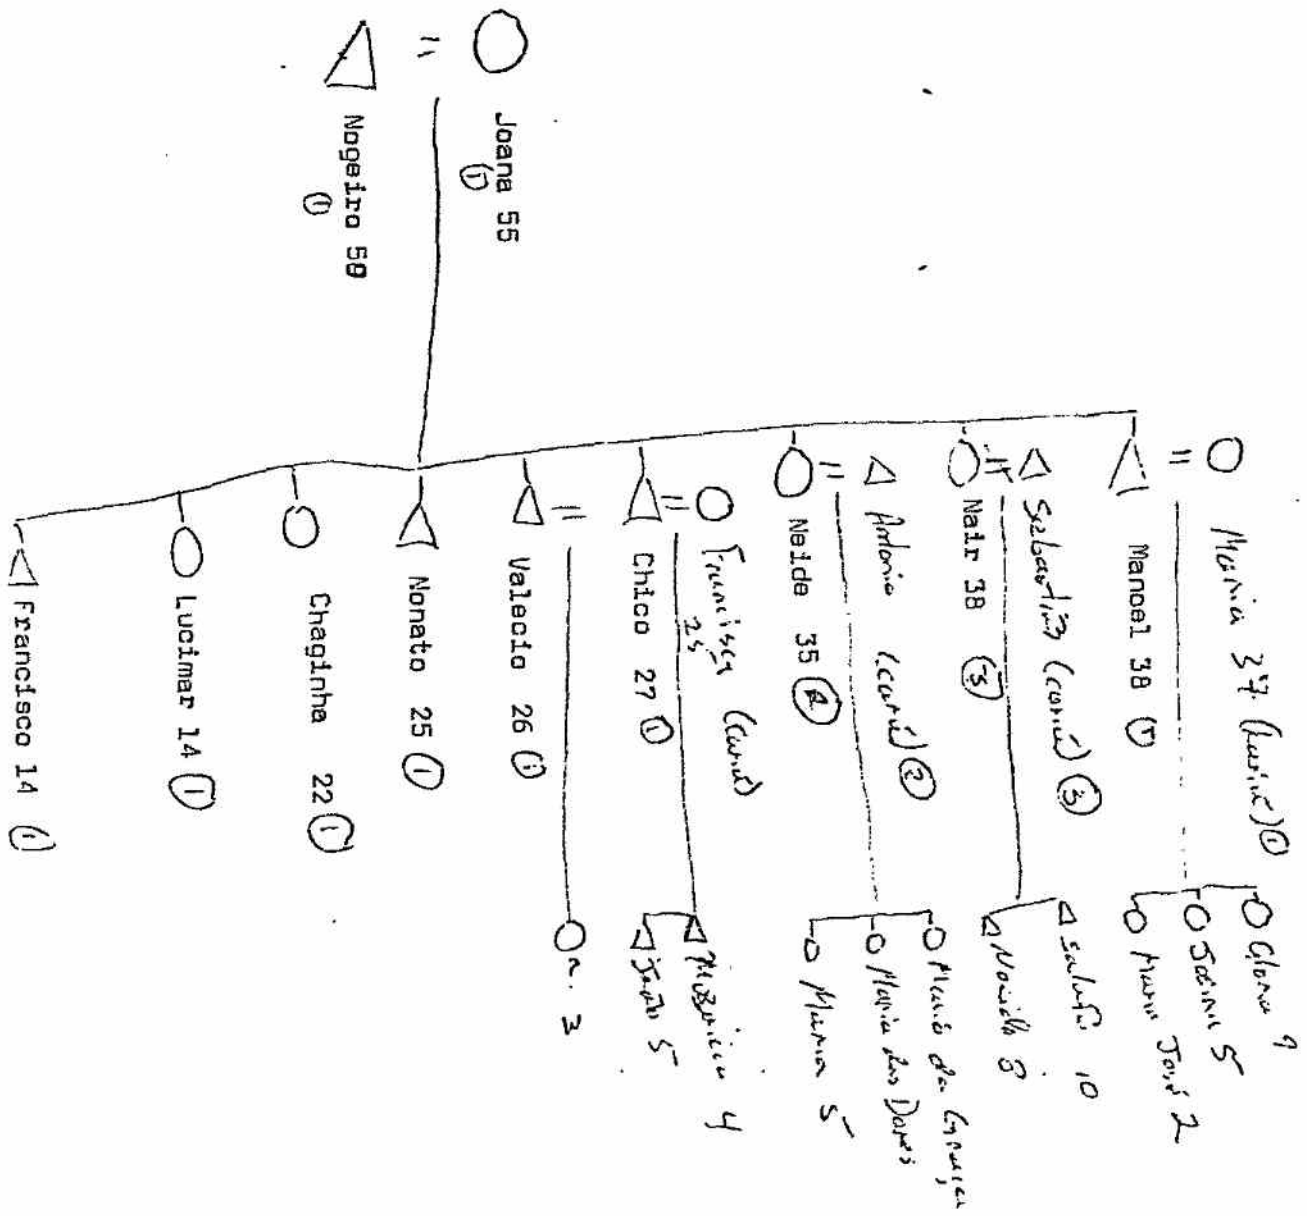 Joana 55
①
Nogeiro 58
①
Maria 37 ①
Manoel 38 ①
Sebastião (cariú) ③
Nair 38 ③
Antonio (cariú) ②
Neide 35 ②
Francisca (cariú)
25
Chico 27 ①
Valecio 26 ①
Nonato 25 ①
Chaginha 22 ①
Lucimar 14 ①
Francisco 14 ①
Gloria 9
5
Maria José 2
10
8
Maria da Graça
Maria das Dores
5
4
João 5
3